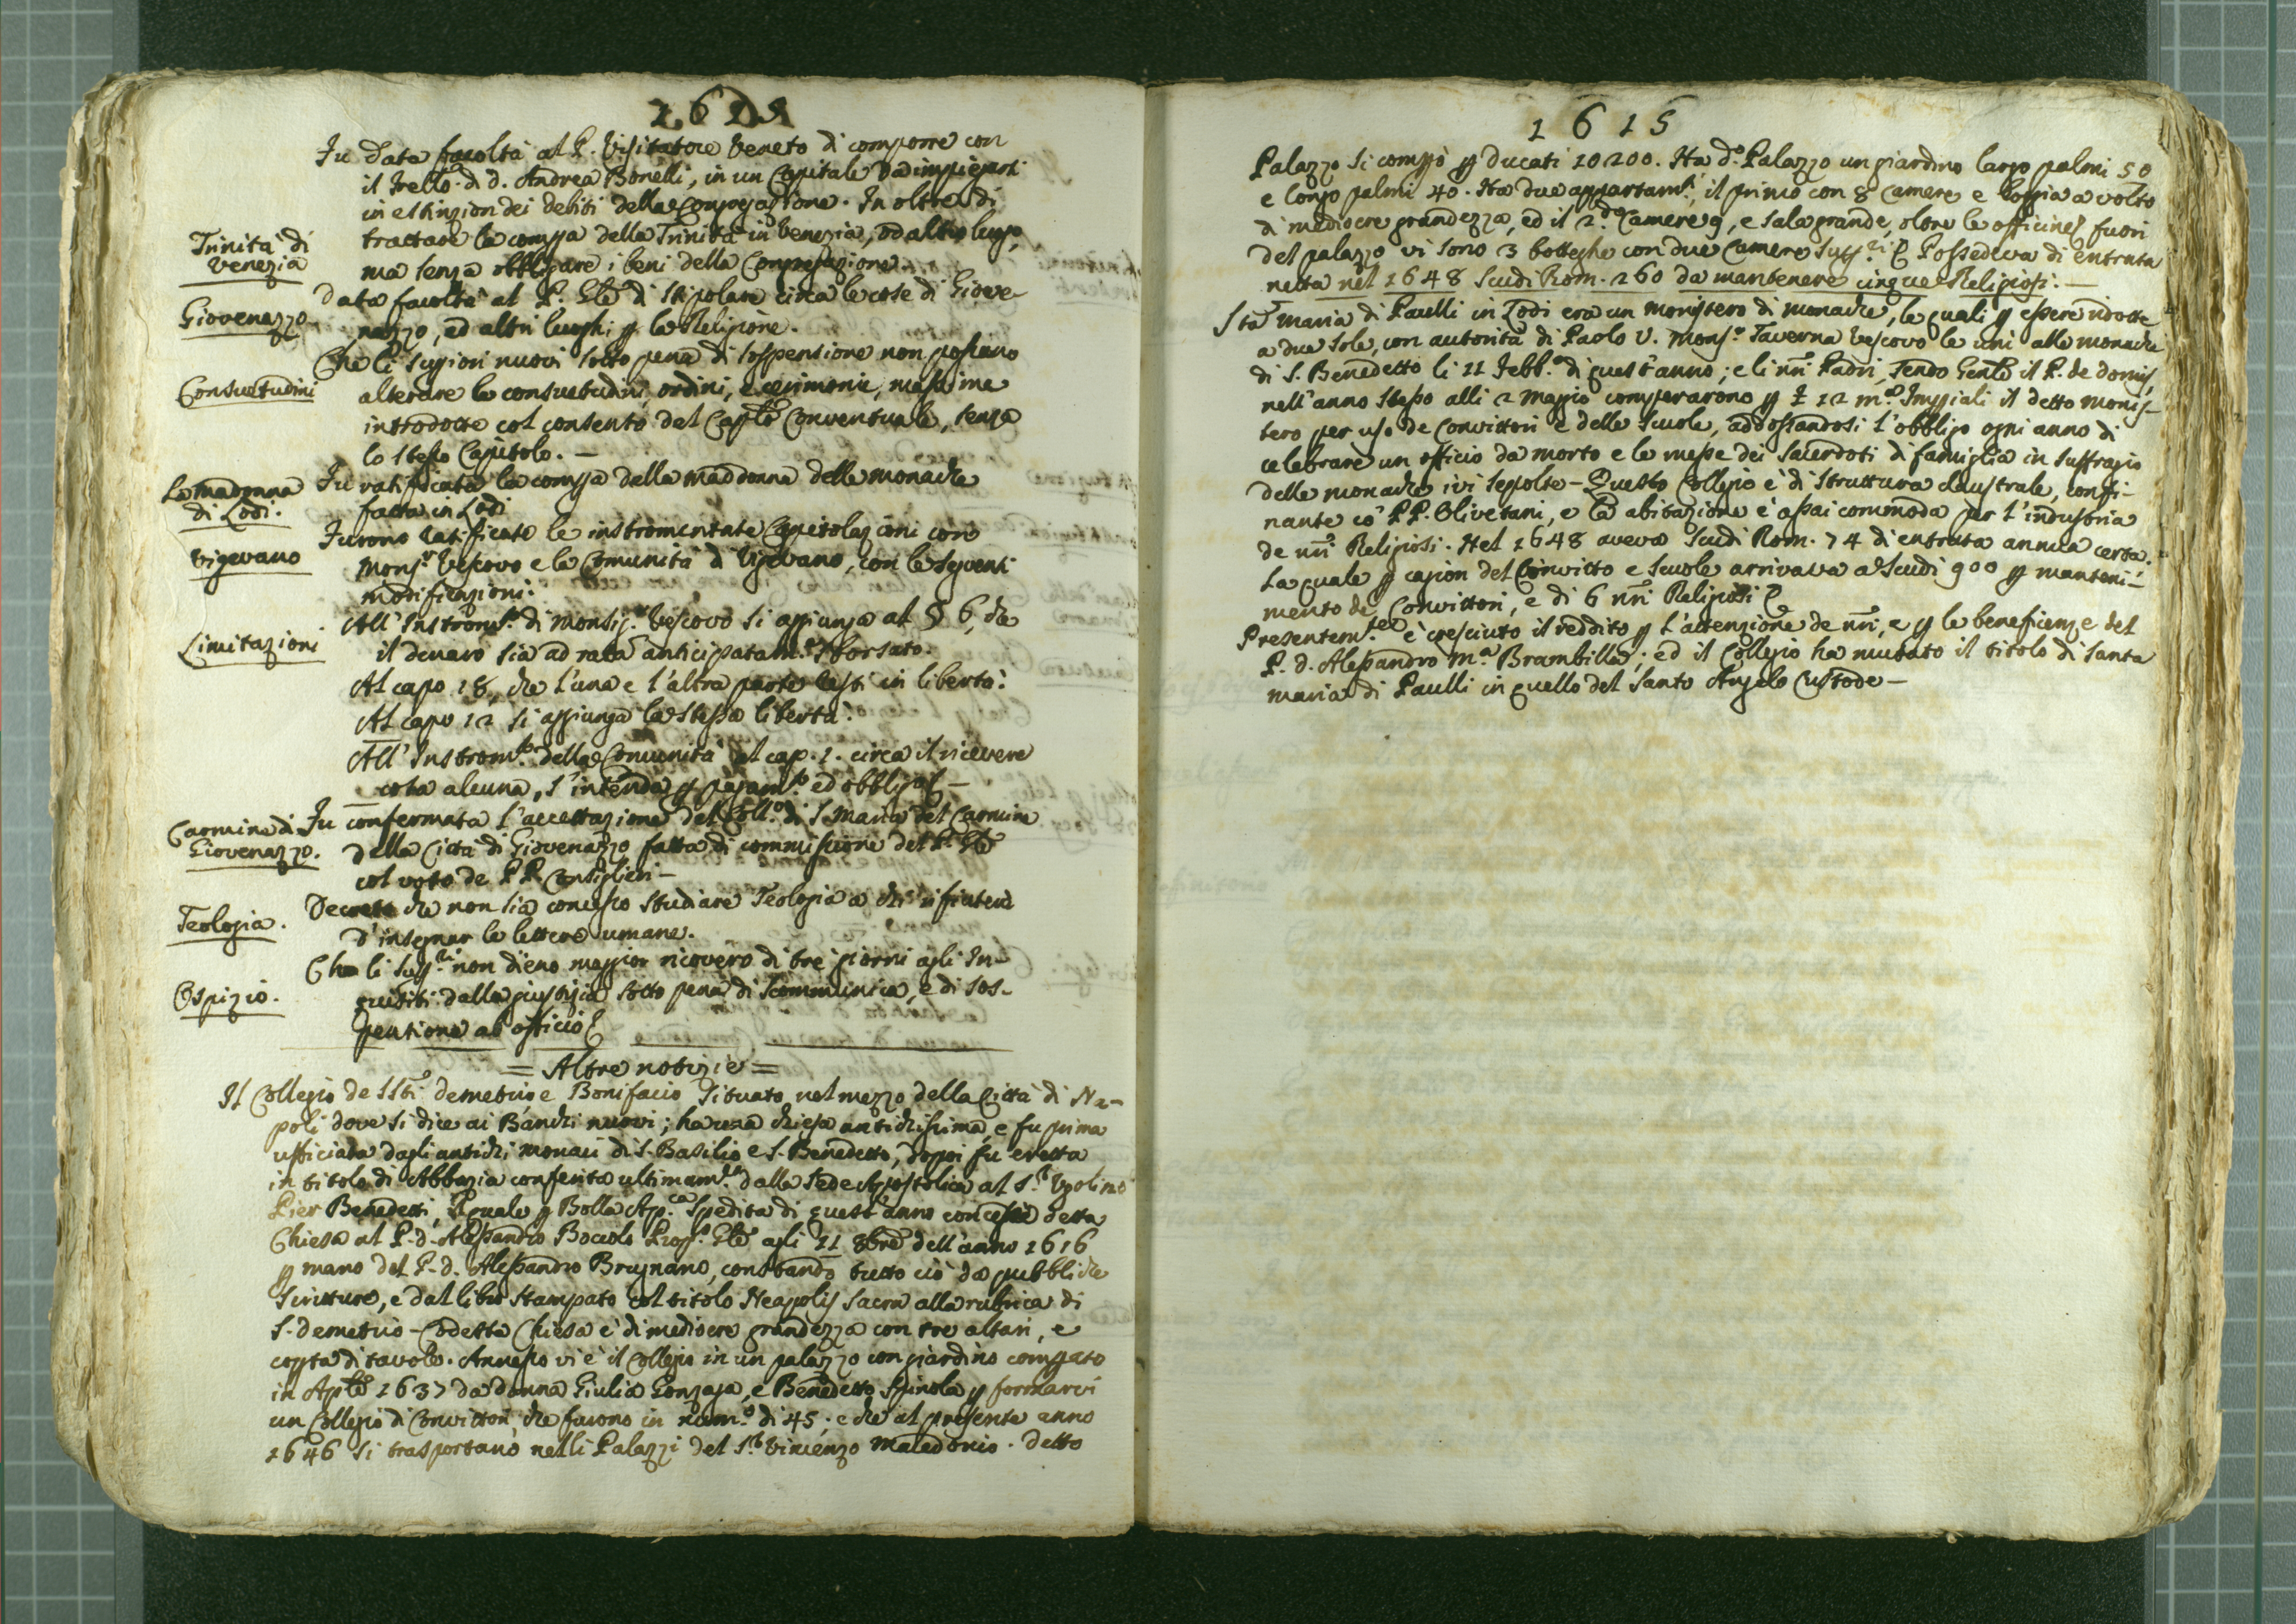 1615
Fu data facoltà al P. Visitatore Veneto di comporre con
il frello di d. Andrea Bonelli, in un Capitale da impiegarsi
in estinzion dei debiti della Congregazione. In oltre di
trattare la compra della Trinità in Venezia, od altro luogo,
Trinità di
Venezia
ma senza obbligare i beni della Congregazione.
Data facoltà al P. Gle di stipolare circa le cose di Giove-
Giovenazzo
nazzo, ed altri luoghi p la Religione.
Che li Suppiori nuovi sotto pena di sospensione non possano
Consuetudini
alterare le consuetudini, ordini, e cerimonie, massime
introdotte col consenso del Caplo Conventuale, senza
lo stesso Capitolo. —
La Madonna
di Lodi.
Fu ratificata la compra della Madonna delle Monache
fatta in Lodi
Furono ratificate le instromentate Capitolazioni con
Vigevano
Monsr. Vescovo e la Comunità di Vigevano, con le seguenti
modificazioni.
All'Instromto. di Monsigr. Vescovo si aggiunga al § 6, che
Limitazioni
il denaro sia ad rata anticipatamte. sborsato.
Al capo 18, che l'una e l'altra parte resti in libertà.
Al capo 12 si aggiunga la stessa libertà.
All'Instromto. della Comunità al cap. 1. circa il ricevere
cosa alcuna, s'intenda p pagamto. ed obbligo —
Carmine di
Giovenazzo.
Fu confermata l'accettazione del Collo. di S. Maria del Carmine
della Città di Giovenazzo fatta di commissione del P. Gle
col voto de PP. Consiglieri —
Teologia.
Decreto che non sia concesso studiare Teologia a chi rifiuterà
d'insegnar le lettere umane.
Che li Suppri. non dieno maggior ricovero di tre giorni agli In-
Ospizio.
quisiti dalla giustizia sotto pena di scommunica, e di sos-
pensione ab officio
= Altre notizie =
Il Collegio de SSti. Demetrio, e Bonifacio situato nel mezzo della Città di Na-
poli dove si dice ai Banchi nuovi; ha una chiesa antichissima, e fu prima
ufficiata dagli antichi monaci di S. Basilio e S. Benedetto, doppoi fu eretta
in titolo di Abbazia conferita ultimamte. dalla Sede Apostolica al Sr. Ugolino
Pier Benedetti, il quale p Bolla Apca. spedita di quest'anno concesse detta
Chiesa al P. d. Alessandro Boccolo Propto. Gle agli 11 8bre dell'anno 1616
p mano del P. d. Alessandro Brugnano, constando tutto ciò da pubbliche
Scritture, e dal libro stampato col titolo Neapolis Sacra alla rubrica di
S. Demetrio — Codetta Chiesa è di mediocre grandezza con tre altari, e
copta di tavole. Annesso vi è il Collegio in un palazzo con giardino comprato
in Aple 1637 da donna Giulia Gonzaga, e Benedetto Spinola p formarvi
un Collegio di Convittori, che furono in numo. di 45; e che al presente anno
1646 si trasportano nelli Palazzi del Sr. Vincenzo Macedonio. Detto
1615
Palazzo si comprò p Ducati 10200. Ha do. Palazzo un giardino largo palmi 50
e longo palmi 40. Ha due appartamti, il primo con 8 Camere e loggia a volto
di mediocre grandezza, ed il 2do. Camere 9, e sala grande, oltre le officine; fuori
del palazzo vi sono 3 botteghe con due Camere supri. Possedeva di entrata
netta nel 1648 Scudi Rom. 260 da mantenere cinque Religiosi. —
Sta Maria di Paulli in Lodi era un monistero di monache, le quali p essere ridotte
a due sole, con autorità di Paolo V. Monsr. Taverna Vescovo le unì alle monache
di S. Benedetto li 11 Febbo. di quest'anno; e li nri Padri, sendo Genle il P. de Domis,
nell'anno stesso alli 2 Maggio comperarono p £ 12 mo. Imppiali il detto monis-
tero per uso de Convittori e delle Scuole, addossandosi l'obbligo ogni anno di
celebrare un officio da morto e le messe dei Sacerdoti di famiglia in suffragio
delle monache ivi sepolte — Questo Collegio è di struttura claustrale, confi-
nante co' PP. Olivetani, e la abitazione è assai commoda per l'industria
de nri Religiosi. Nel 1648 aveva Scudi Rom. 74 di entrata annua certa.
La quale p cagion del Convitto e Scuole arrivava a Scudi 900 p manteni-
mento de Convittori, e di 6 nri Religiosi
Presentemte. è cresciuto il reddito p l'attenzione de nri, e p le beneficenze del
P. d. Alessandro Ma. Brambilla; ed il Collegio ha mutato il titolo di Santa
Maria di Paulli in quello del Santo Angelo Custode —